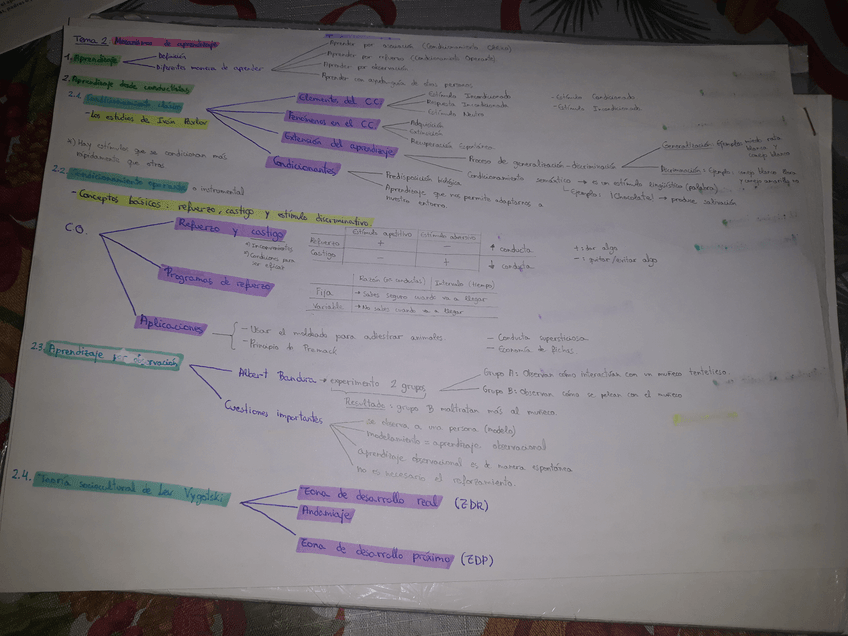 Tema 2. Mecanismos de aprendizaje
1. Aprendizaje
Definición
Diferentes maneras de aprender
Aprender por asociación (Condicionamiento Clásico)
Aprender por refuerzo (Condicionamiento Operante)
Aprender por observación
Aprender con ayuda/guía de otras personas
2. Aprendizaje desde conductistas
2.1. Condicionamiento clásico
- Los estudios de Iván Pavlov
Elementos del CC
Estímulo Incondicionado
Respuesta Incondicionada
Estímulo Neutro
- Estímulo Condicionado
- Estímulo Incondicionado
Fenómenos en el CC
Adquisición
Extinción
Recuperación Espontánea
Extensión del aprendizaje
Proceso de generalización-discriminación
Generalización Ejemplo: miedo rata blanca y conejo blanco
Discriminación: Ejemplo:
Condicionamiento semántico → es un estímulo lingüístico (palabra)
Ejemplo: ¡Chocolate! → produce salivación
Condicionantes
Predisposición biológica
Aprendizaje que nos permite adaptarnos a nuestro entorno.
a) Hay estímulos que se condicionan más rápidamente que otros
2.2. Condicionamiento operante o instrumental
- Conceptos básicos: refuerzo, castigo y estímulo discriminativo.
C.O.
Refuerzo y castigo
a) Inconvenientes
b) Condiciones para ser eficaz
Estímulo apetitivo Estímulo aversivo
Refuerzo + - ↑ conducta + : dar algo
Castigo - + ↓ conducta - : quitar/evitar algo
Programas de refuerzo
Razón (nº conductas) Intervalo (tiempo)
Fija → Sabes seguro cuando va a llegar
Variable → No sabes cuando va a llegar
Aplicaciones
- Usar el moldeado para adiestrar animales
- Principio de Premack
- Conducta supersticiosa
- Economía de fichas
2.3. Aprendizaje por observación
Albert Bandura → experimento 2 grupos
Grupo A: Observan cómo interactúan con un muñeco tentetieso.
Grupo B: Observan cómo se pelean con el muñeco
Resultado: grupo B maltratan más al muñeco.
Cuestiones importantes
se observa a una persona (modelo)
modelamiento = aprendizaje observacional
aprendizaje observacional es de manera espontánea
no es necesario el reforzamiento.
2.4. Teoría sociocultural de Lev Vygotski
Zona de desarrollo real (ZDR)
Andamiaje
Zona de desarrollo próximo (ZDP)